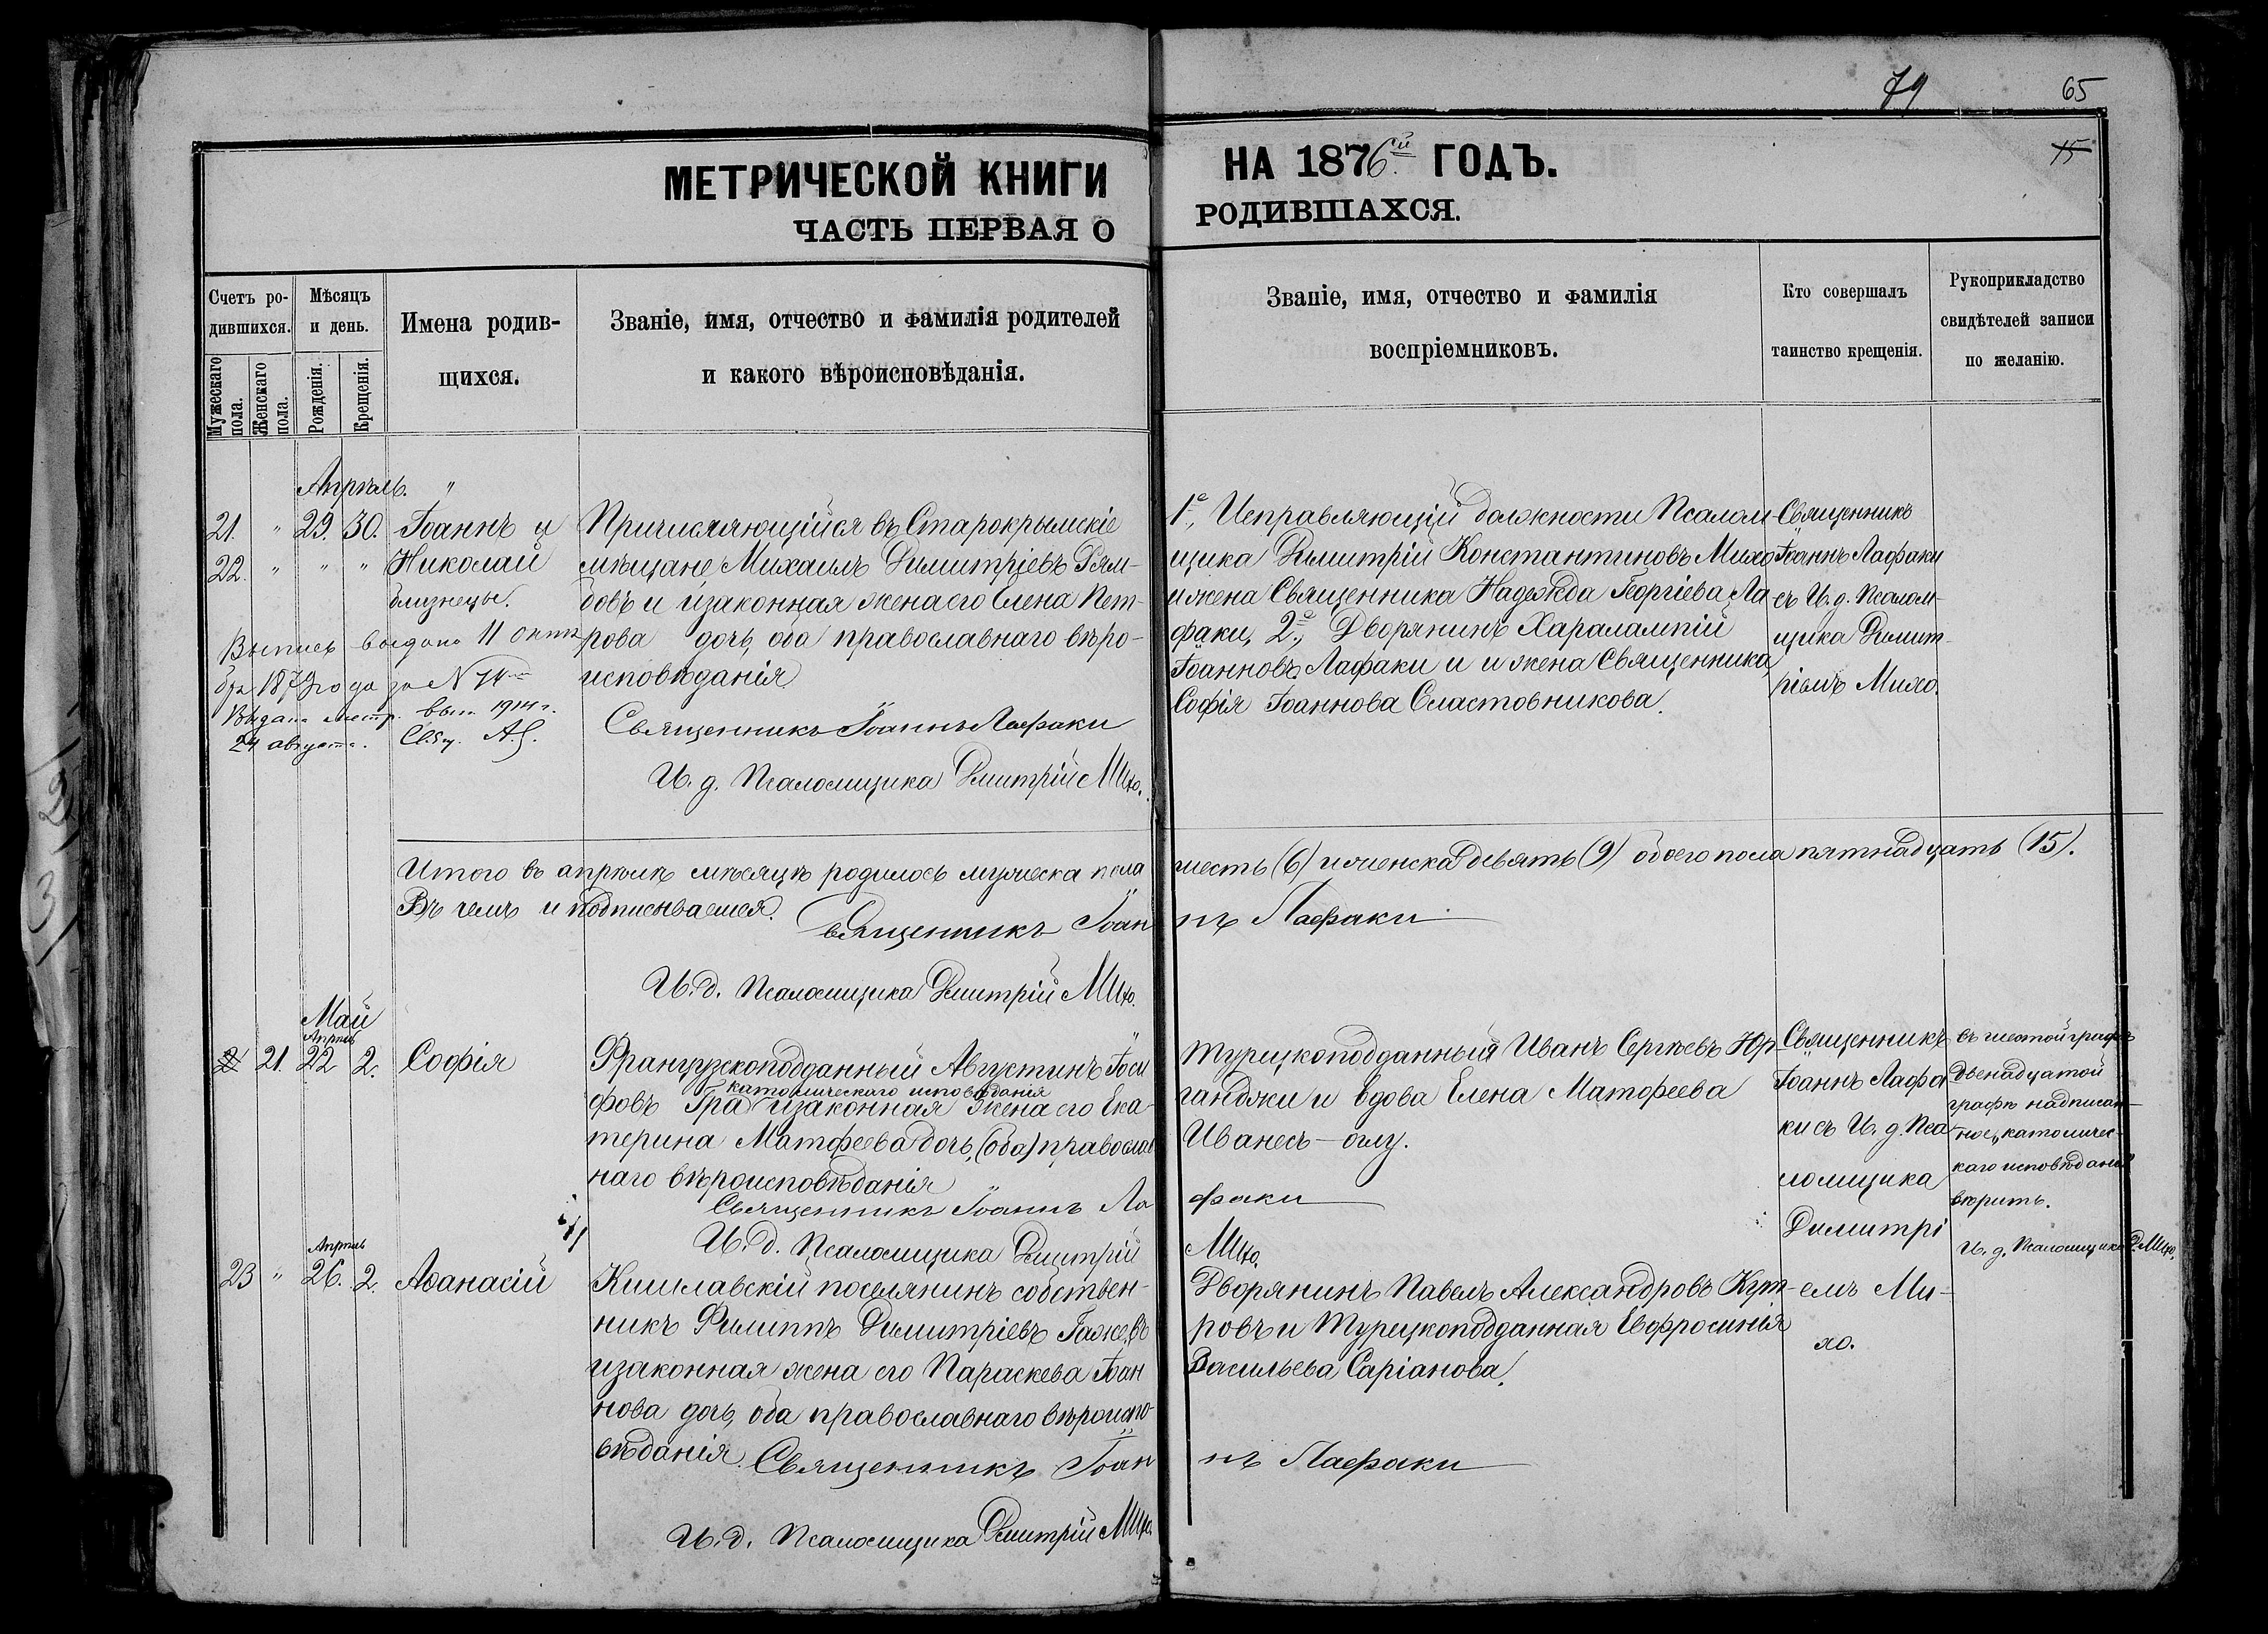 79 65
15
МЕТРИЧЕСКОЙ КНИГИ НА 1876й ГОДЪ.
ЧАСТЬ ПЕРВАЯ О РОДИВШАХСЯ.
Счетъ ро-
дившихся.
Мужескаго пола.
Женскаго пола.
Мѣсяцъ
и день.
Рожденія.
Крещенія.
Имена родив-
щихся.
Званіе, имя, отчество и фамилія родителей
и какого вѣроисповѣданія.
Званіе, имя, отчество и фамилія
воспріемниковъ.
Кто совершалъ
таинство крещенія.
Рукоприкладство
свидѣтелей записи
по желанію.
Апрѣль. "
21. " 29. 30. Іоаннъ и
22. " " " Николай
близнецы.
Выпись выдана 11 октя
бря 1879 года за N 74
Выдана метр. вып. 1914 г.
24 августа. Свящ. А.
Причисляющійся въ Старокрымскіе
мѣщане Михаилъ Димитріевъ
довъ и изаконная жена его Елена Пет-
рова дочь, оба православнаго вѣро-
исповѣданія
Священникъ Іоаннъ Лафаки
И. д. Псаломщика Дмитрій Михо.
1е, Исправляющій должности Псалом-
щика Димитрій Константиновъ Михо
и жена Священника Надежда Георгіева Ла
факи, 2е, Дворянинъ Харалампій
Іоанновъ Лафаки и и жена Священника,
Софія Іоаннова Сластовникова.
Священникъ
Іоаннъ Лафаки
съ И. д. Псалом-
щика Димит-
ріемъ Михо.
Итого въ апрѣлѣ мѣсяцѣ родилось мужеска пола шесть (6) и женска девять (9) обоего пола пятнадцать (15).
Въ чемъ и подписываемся. Священникъ Іоаннъ Лафаки
И. д. Псаломщика Дмитрій Михо.
Май
Апрѣль
21. 22 2. Софія
Французскоподданный Августинъ Іоси
католическаго исповѣданія
фовъ Гра изаконная жена его Ека-
терина Матфеева дочь, (оба) православ
наго вѣроисповѣданія
Священникъ Іоаннъ Лафаки
И. д. Псаломщика Дмитрій Михо.
Турецкоподданный Иванъ Сергѣевъ Юр-
ганджи и вдова Елена Матфеева
Иванесъ-оглу.
Священникъ
Іоаннъ Лафа
ки съ И. д. Пса
ломщика
Димитрі
емъ Ми-
хо.
въ шестой графѣ
двенадцатой
графѣ надписан-
ное, католичес-
каго исповѣданія
вѣрить.
И. д. Псаломщика Д. Михо.
Апрѣль
23 " 26. 2. Аѳанасій
Кишлавскій поселянинъ собствен-
никъ Филиппъ Димитріевъ Гажевъ
изаконная жена его Параскева Іоан
нова дочь, оба православнаго вѣроиспо-
вѣданія. Священникъ Іоаннъ Лафаки
И. д. Псаломщика Дмитрій Михо.
Дворянинъ Павелъ Александровъ Курт-
ровъ и Турецкоподданная Ефросинія
Васильева Саріанова.